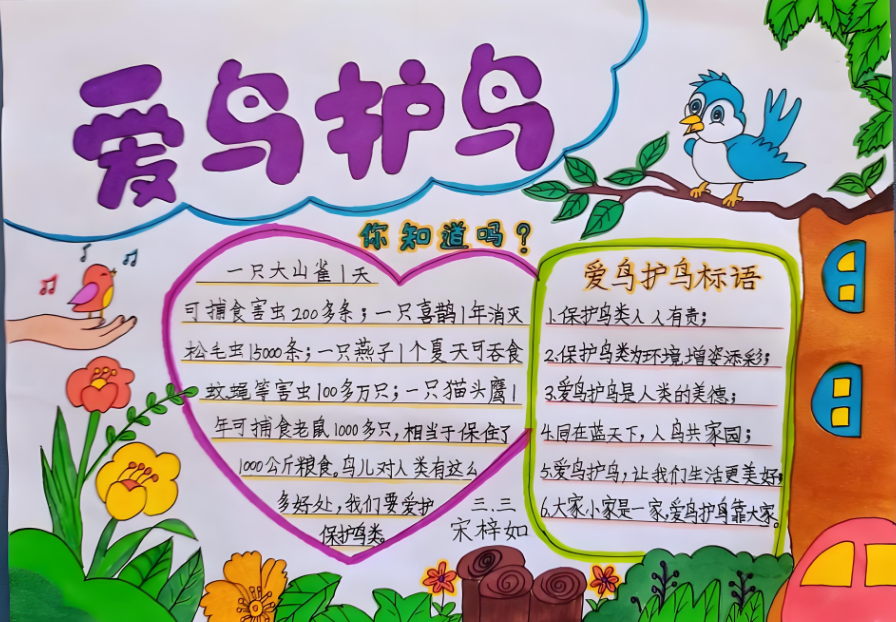 爱鸟护鸟
你知道吗？
一只大山雀1天
可捕食害虫200多条；一只喜鹊1年消灭
松毛虫15000条；一只燕子1个夏天可吞食
蚊蝇等害虫100多万只；一只猫头鹰1
年可捕食老鼠1000多只，相当于保住了
1000公斤粮食。鸟儿对人类有这么
多好处，我们要爱护
保护鸟类。
三.三
宋梓如
爱鸟护鸟标语
1.保护鸟类人人有责；
2.保护鸟类为环境增姿添彩；
3.爱鸟护鸟是人类的美德；
4.同在蓝天下，人鸟共家园；
5.爱鸟护鸟，让我们生活更美好；
6.大家小家是一家，爱鸟护鸟靠大家。